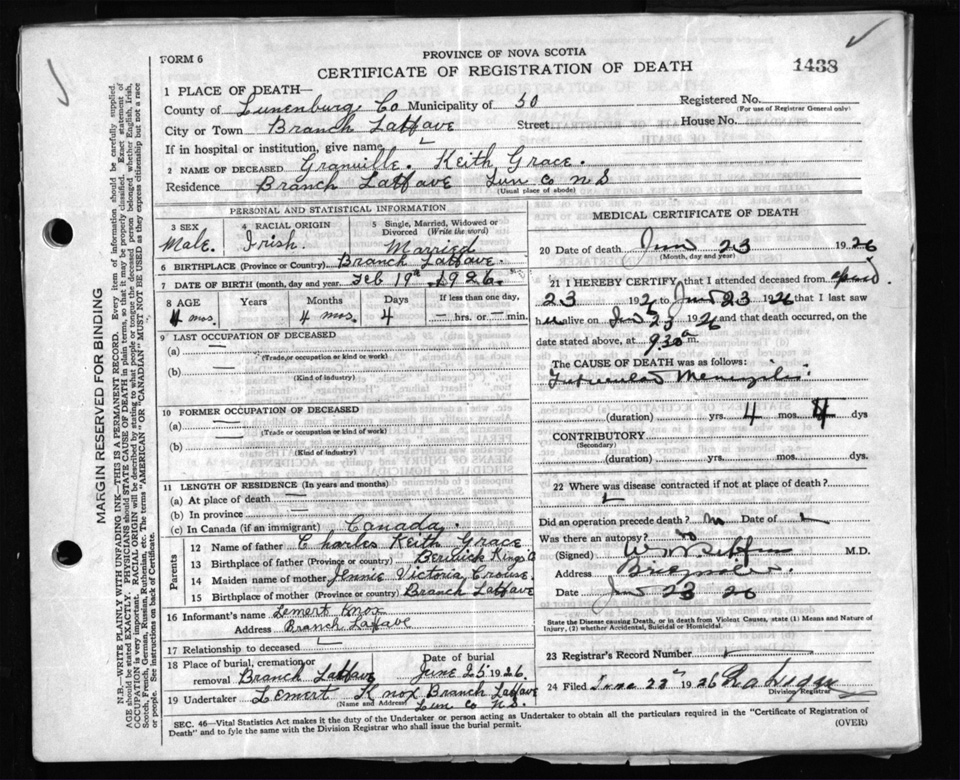 FORM 6
PROVINCE OF NOVA SCOTIA
CERTIFICATE OF REGISTRATION OF DEATH
1438
1 PLACE OF DEATH—
County of Lunenburg Co Municipality of 50 Registered No.
(For use of Registrar General only)
City or Town Branch LaHave Street House No.
If in hospital or institution, give name
2 NAME OF DECEASED Granville. Keith Grace.
Residence Branch LaHave Lun Co N S
(Usual place of abode)
PERSONAL AND STATISTICAL INFORMATION
3 SEX 4 RACIAL ORIGIN 5 Single, Married, Widowed or Divorced (Write the word)
Male. Irish. Married
6 BIRTHPLACE (Province or Country) Branch LaHave.
7 DATE OF BIRTH (month, day and year) Feb 19th 1926.
8 AGE Years Months Days If less than one day,
4 mos. 4 mos. 4 — hrs. or — min.
9 LAST OCCUPATION OF DECEASED
(a) —
(Trade, or occupation or kind or work)
(b) —
(Kind of industry)
10 FORMER OCCUPATION OF DECEASED
(a) —
(Trade or occupation or kind of work)
(b) —
(Kind of industry)
11 LENGTH OF RESIDENCE (In years and months)
(a) At place of death —
(b) In province —
(c) In Canada (if an immigrant) Canada.
Parents
12 Name of father Charles Keith Grace
13 Birthplace of father (Province or country) Berwick Kings Co
14 Maiden name of mother Jennie Victoria Crouse.
15 Birthplace of mother (Province or country) Branch LaHave
16 Informant's name Lemert Knox
Address Branch LaHave
17 Relationship to deceased
18 Place of burial, cremation or removal Branch LaHave Date of burial June 25 1926.
19 Undertaker Lemert Knox Branch LaHave
(Name and Address) Lun Co N.S.
MEDICAL CERTIFICATE OF DEATH
20 Date of death Jun 23 1926
(Month, day and year)
21 I HEREBY CERTIFY, that I attended deceased from April
23 1926 to Jun 23 1926 that I last saw
h alive on Jun 23 1926 and that death occurred, on the
date stated above, at 9.30 a m.
The CAUSE OF DEATH was as follows:
Tubercular Meningitis
(duration) yrs. 4 mos. 4 dys
CONTRIBUTORY
(Secondary)
(duration) yrs. mos. dys.
22 Where was disease contracted if not at place of death?
Did an operation precede death? no Date of
Was there an autopsy? no
(Signed) M.D.
Address Bridgewater.
Date Jun 23 26
State the Disease causing Death, or in death from Violent Causes, state (1) Means and Nature of
Injury, (2) whether Accidental, Suicidal or Homicidal.
23 Registrar's Record Number
24 Filed June 1926
Division Registrar
SEC. 46—Vital Statistics Act makes it the duty of the Undertaker or person acting as Undertaker to obtain all the particulars required in the "Certificate of Registration of
Death" and to fyle the same with the Division Registrar who shall issue the burial permit. (OVER)
MARGIN RESERVED FOR BINDING
N.B.—WRITE PLAINLY WITH UNFADING INK—THIS IS A PERMANENT RECORD. Every item of information should be carefully supplied.
AGE should be stated EXACTLY. PHYSICIANS should STATE CAUSE OF DEATH in plain terms, so that it may be properly classified. Exact statement of
OCCUPATION is very important. RACIAL ORIGIN will be described by stating to what people or tongue the deceased person belonged whether English, Irish,
Scotch, French, German, Russian, Ruthenian, etc. The terms "AMERICAN" or "CANADIAN" MUST NOT BE USED as they express citizenship but not a race
or people. See instructions on back of Certificate.